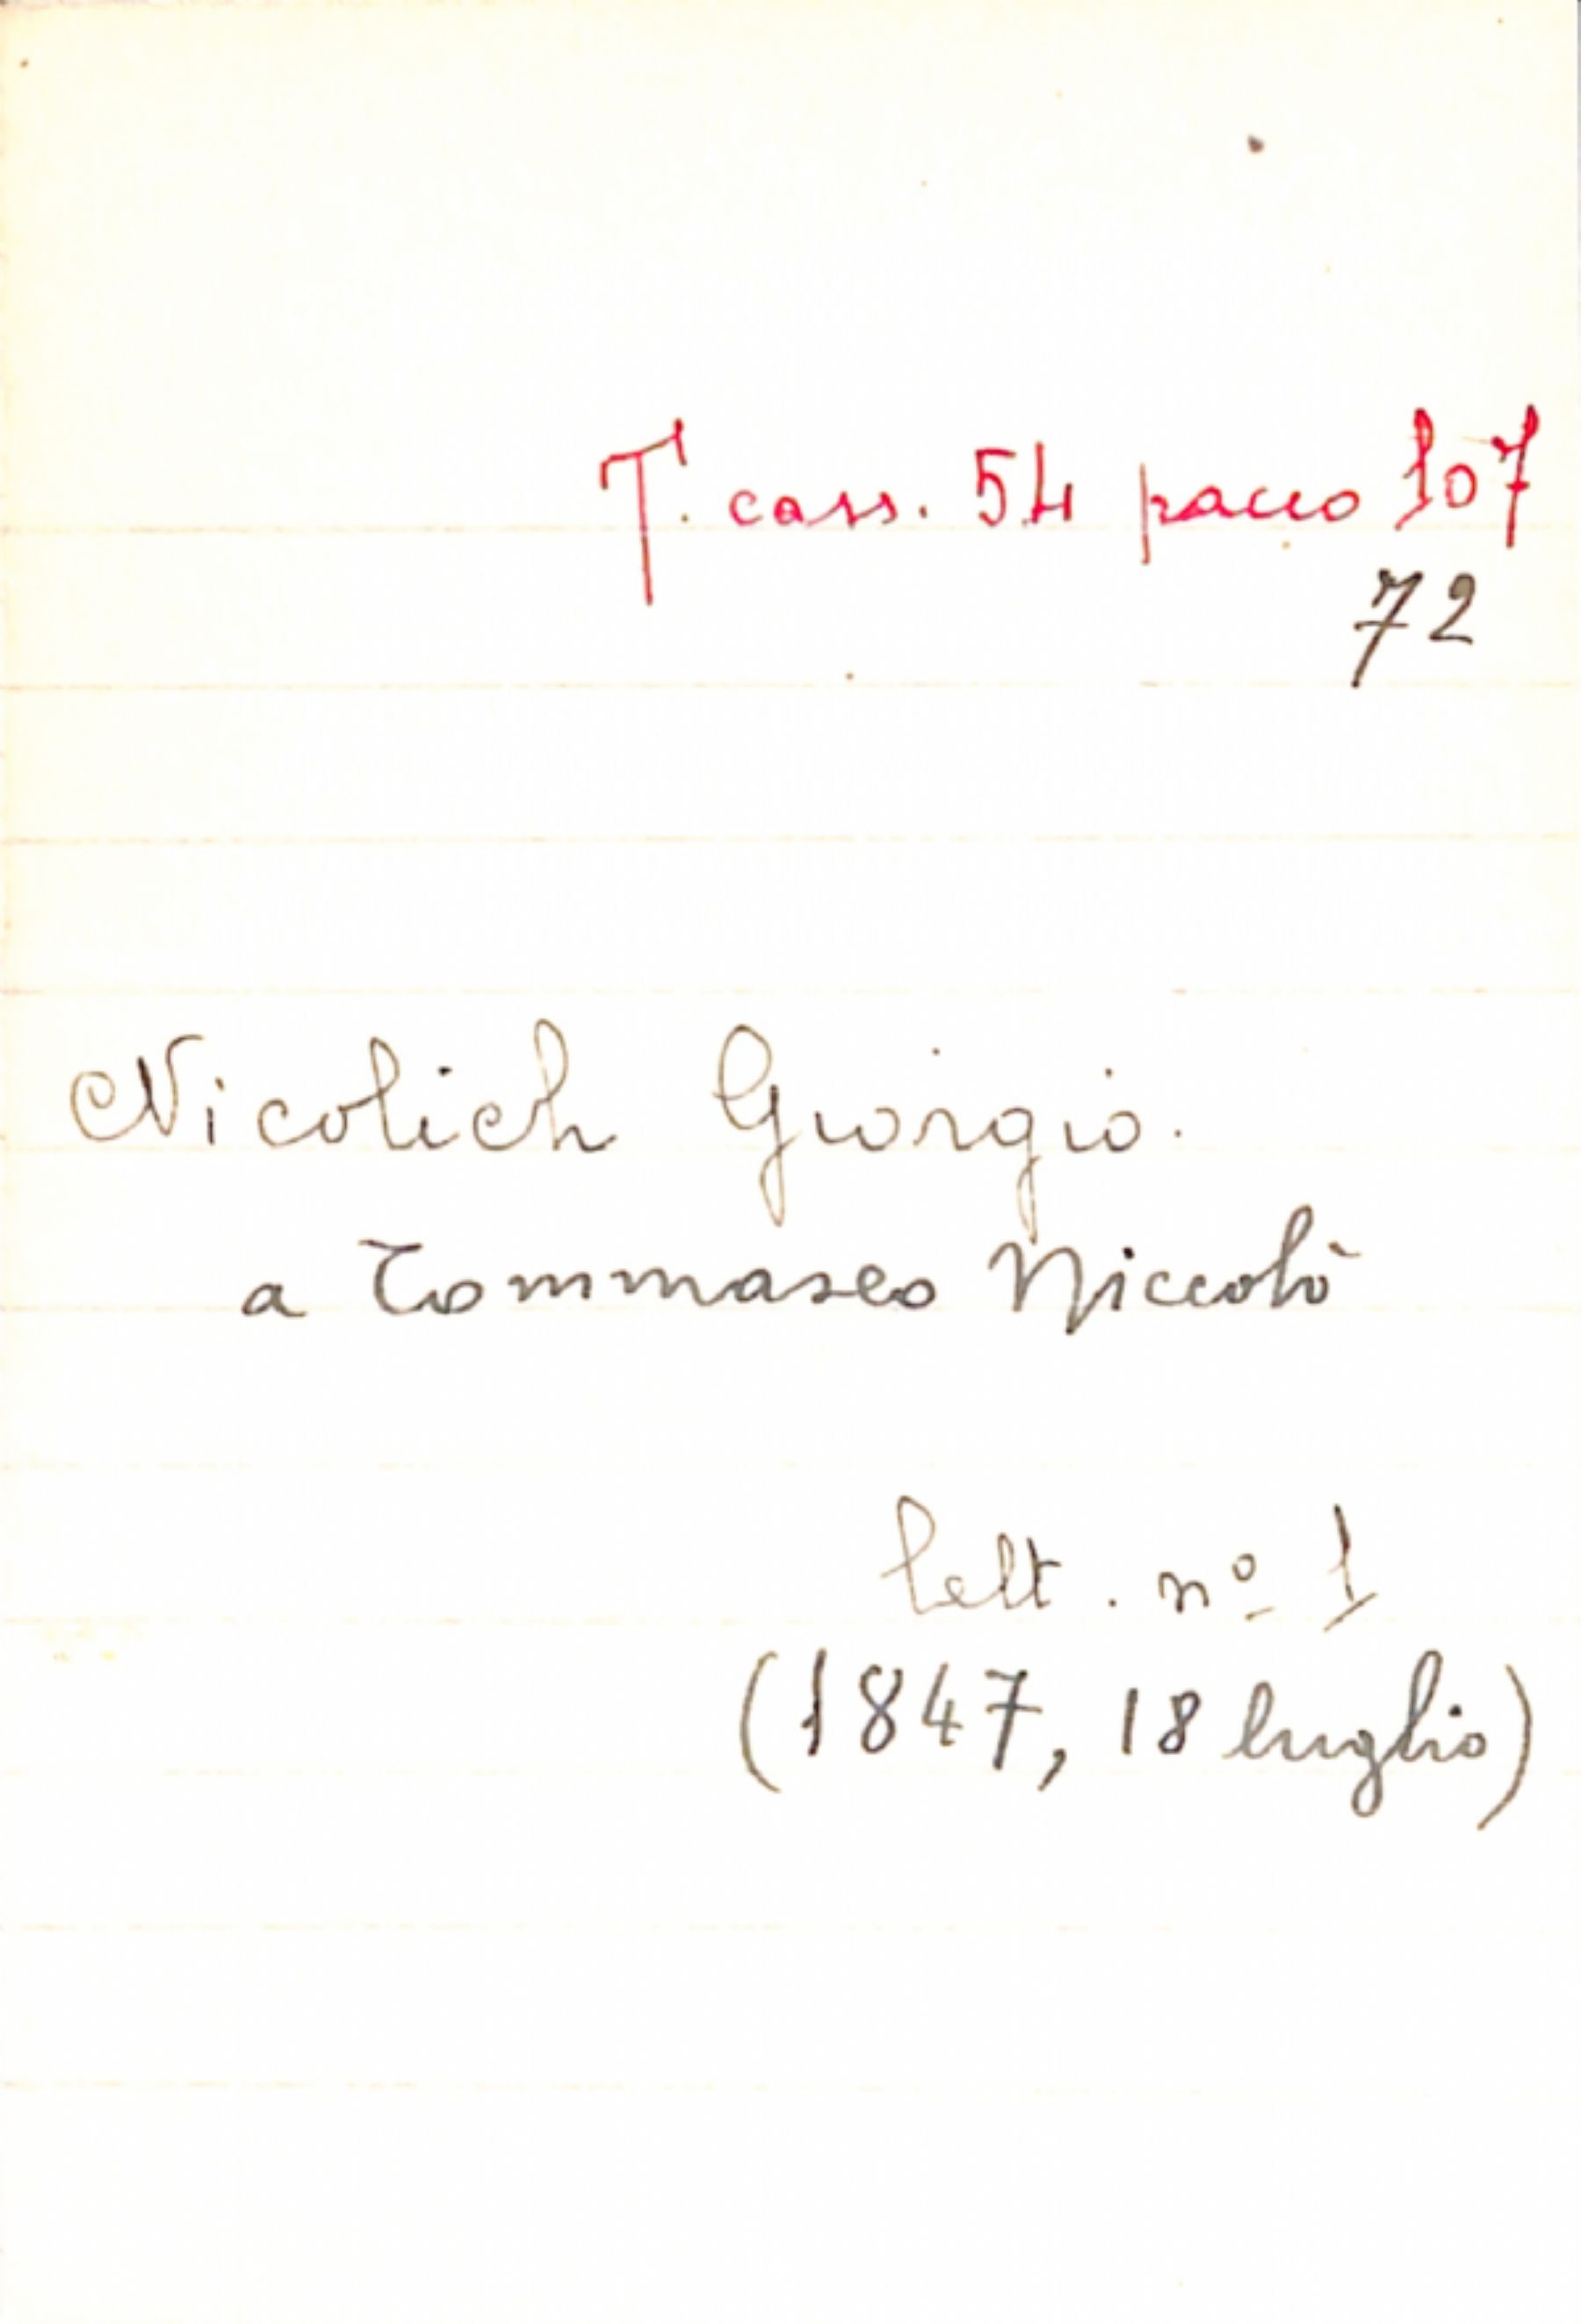 T. cass. 54 pacco 107
72
Nicolich Giorgio.
a Tommaseo Niccolò
lett. nº 1
(1847, 18 luglio)